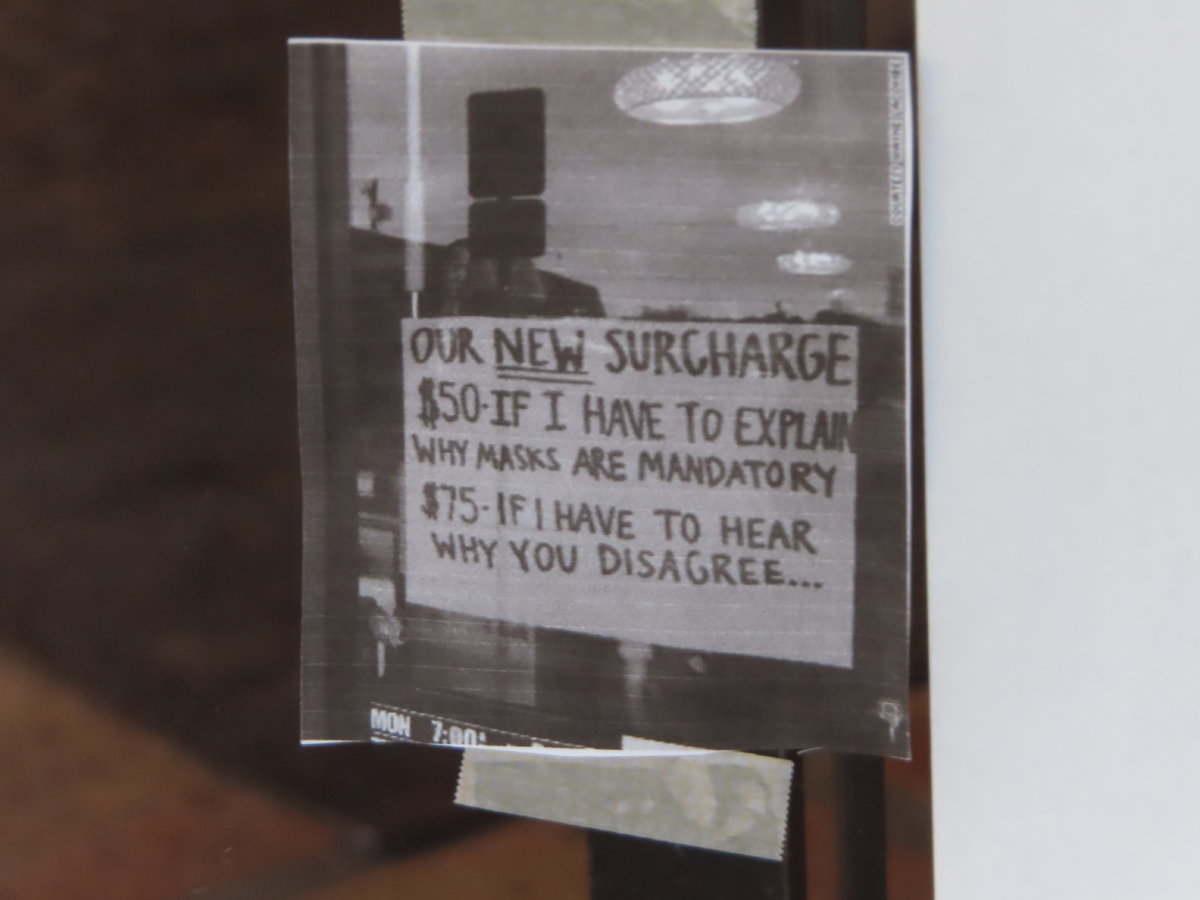 OUR NEW SURCHARGE
$50-IF I HAVE TO EXPLAIN
WHY MASKS ARE MANDATORY
$75-IF I HAVE TO HEAR
WHY YOU DISAGREE...
MON 7:00